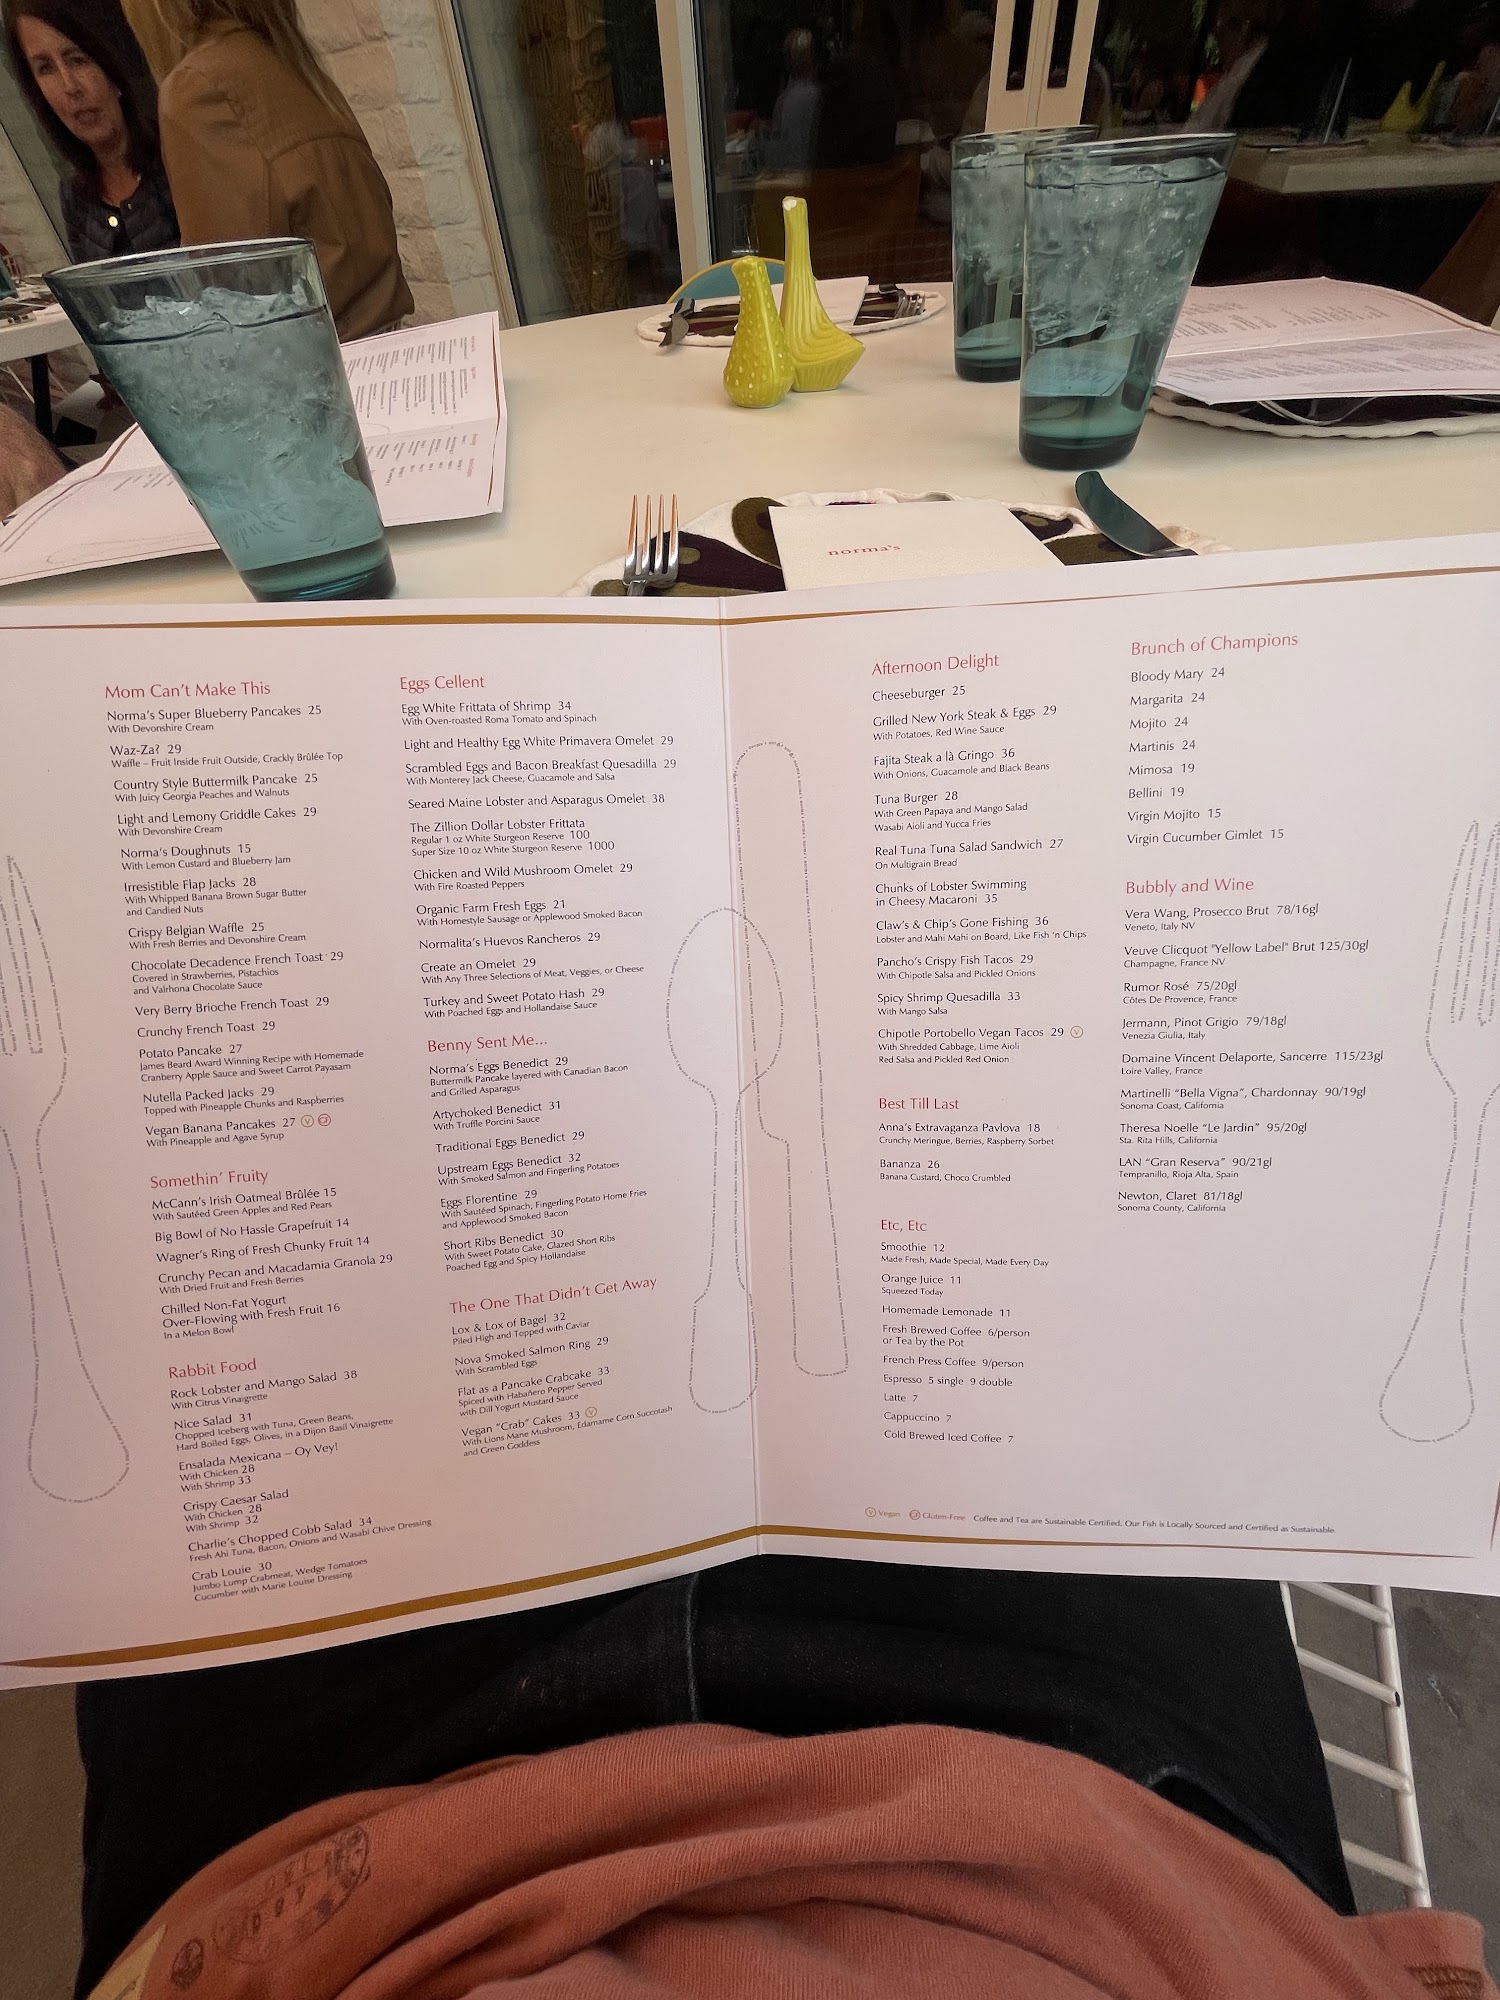 norma's
Mom Can't Make This
Norma's Super Blueberry Pancakes 25
With Devonshire Cream
Waz-Za? 29
Waffle – Fruit Inside Fruit Outside, Crackly Brûlée Top
Country Style Buttermilk Pancake 25
With Juicy Georgia Peaches and Walnuts
Light and Lemony Griddle Cakes 29
With Devonshire Cream
Norma's Doughnuts 15
With Lemon Custard and Blueberry Jam
Irresistible Flap Jacks 28
With Whipped Banana Brown Sugar Butter
and Candied Nuts
Crispy Belgian Waffle 25
With Fresh Berries and Devonshire Cream
Chocolate Decadence French Toast 29
Covered in Strawberries, Pistachios
and Valrhona Chocolate Sauce
Very Berry Brioche French Toast 29
Crunchy French Toast 29
Potato Pancake 27
James Beard Award Winning Recipe with Homemade
Cranberry Apple Sauce and Sweet Carrot Payasam
Nutella Packed Jacks 29
Topped with Pineapple Chunks and Raspberries
Vegan Banana Pancakes 27 V GF
With Pineapple and Agave Syrup
Somethin' Fruity
McCann's Irish Oatmeal Brûlée 15
With Sautéed Green Apples and Red Pears
Big Bowl of No Hassle Grapefruit 14
Wagner's Ring of Fresh Chunky Fruit 14
Crunchy Pecan and Macadamia Granola 29
With Dried Fruit and Fresh Berries
Chilled Non-Fat Yogurt
Over-Flowing with Fresh Fruit 16
In a Melon Bowl
Rabbit Food
Rock Lobster and Mango Salad 38
With Citrus Vinaigrette
Nice Salad 31
Chopped Iceberg with Tuna, Green Beans,
Hard Boiled Eggs, Olives, in a Dijon Basil Vinaigrette
Ensalada Mexicana – Oy Vey!
With Chicken 28
With Shrimp 33
Crispy Caesar Salad
With Chicken 28
With Shrimp 32
Charlie's Chopped Cobb Salad 34
Fresh Ahi Tuna, Bacon, Onions and Wasabi Chive Dressing
Crab Louie 30
Jumbo Lump Crabmeat, Wedge Tomatoes
Cucumber with Marie Louise Dressing
Eggs Cellent
Egg White Frittata of Shrimp 34
With Oven-roasted Roma Tomato and Spinach
Light and Healthy Egg White Primavera Omelet 29
Scrambled Eggs and Bacon Breakfast Quesadilla 29
With Monterey Jack Cheese, Guacamole and Salsa
Seared Maine Lobster and Asparagus Omelet 38
The Zillion Dollar Lobster Frittata
Regular 1 oz White Sturgeon Reserve 100
Super Size 10 oz White Sturgeon Reserve 1000
Chicken and Wild Mushroom Omelet 29
With Fire Roasted Peppers
Organic Farm Fresh Eggs 21
With Homestyle Sausage or Applewood Smoked Bacon
Normalita's Huevos Rancheros 29
Create an Omelet 29
With Any Three Selections of Meat, Veggies, or Cheese
Turkey and Sweet Potato Hash 29
With Poached Eggs and Hollandaise Sauce
Benny Sent Me...
Norma's Eggs Benedict 29
Buttermilk Pancake layered with Canadian Bacon
and Grilled Asparagus
Artychoked Benedict 31
With Truffle Porcini Sauce
Traditional Eggs Benedict 29
Upstream Eggs Benedict 32
With Smoked Salmon and Fingerling Potatoes
Eggs Florentine 29
With Sautéed Spinach, Fingerling Potato Home Fries
and Applewood Smoked Bacon
Short Ribs Benedict 30
With Sweet Potato Cake, Glazed Short Ribs
Poached Egg and Spicy Hollandaise
The One That Didn't Get Away
Lox & Lox of Bagel 32
Piled High and Topped with Caviar
Nova Smoked Salmon Ring 29
With Scrambled Eggs
Flat as a Pancake Crabcake 33
Spiced with Habañero Pepper Served
with Dill Yogurt Mustard Sauce
Vegan "Crab" Cakes 33 V
With Lions Mane Mushroom, Edamame Corn Succotash
and Green Goddess
Afternoon Delight
Cheeseburger 25
Grilled New York Steak & Eggs 29
With Potatoes, Red Wine Sauce
Fajita Steak a là Gringo 36
With Onions, Guacamole and Black Beans
Tuna Burger 28
With Green Papaya and Mango Salad
Wasabi Aioli and Yucca Fries
Real Tuna Tuna Salad Sandwich 27
On Multigrain Bread
Chunks of Lobster Swimming
in Cheesy Macaroni 35
Claw's & Chip's Gone Fishing 36
Lobster and Mahi Mahi on Board, Like Fish 'n Chips
Pancho's Crispy Fish Tacos 29
With Chipotle Salsa and Pickled Onions
Spicy Shrimp Quesadilla 33
With Mango Salsa
Chipotle Portobello Vegan Tacos 29 V
With Shredded Cabbage, Lime Aioli
Red Salsa and Pickled Red Onion
Best Till Last
Anna's Extravaganza Pavlova 18
Crunchy Meringue, Berries, Raspberry Sorbet
Bananza 26
Banana Custard, Choco Crumbled
Etc, Etc
Smoothie 12
Made Fresh, Made Special, Made Every Day
Orange Juice 11
Squeezed Today
Homemade Lemonade 11
Fresh Brewed Coffee 6/person
or Tea by the Pot
French Press Coffee 9/person
Espresso 5 single 9 double
Latte 7
Cappuccino 7
Cold Brewed Iced Coffee 7
Brunch of Champions
Bloody Mary 24
Margarita 24
Mojito 24
Martinis 24
Mimosa 19
Bellini 19
Virgin Mojito 15
Virgin Cucumber Gimlet 15
Bubbly and Wine
Vera Wang, Prosecco Brut 78/16gl
Veneto, Italy NV
Veuve Clicquot "Yellow Label" Brut 125/30gl
Champagne, France NV
Rumor Rosé 75/20gl
Côtes De Provence, France
Jermann, Pinot Grigio 79/18gl
Venezia Giulia, Italy
Domaine Vincent Delaporte, Sancerre 115/23gl
Loire Valley, France
Martinelli "Bella Vigna", Chardonnay 90/19gl
Sonoma Coast, California
Theresa Noelle "Le Jardin" 95/20gl
Sta. Rita Hills, California
LAN "Gran Reserva" 90/21gl
Tempranillo, Rioja Alta, Spain
Newton, Claret 81/18gl
Sonoma County, California
V Vegan GF Gluten-Free Coffee and Tea are Sustainable Certified. Our Fish is Locally Sourced and Certified as Sustainable.